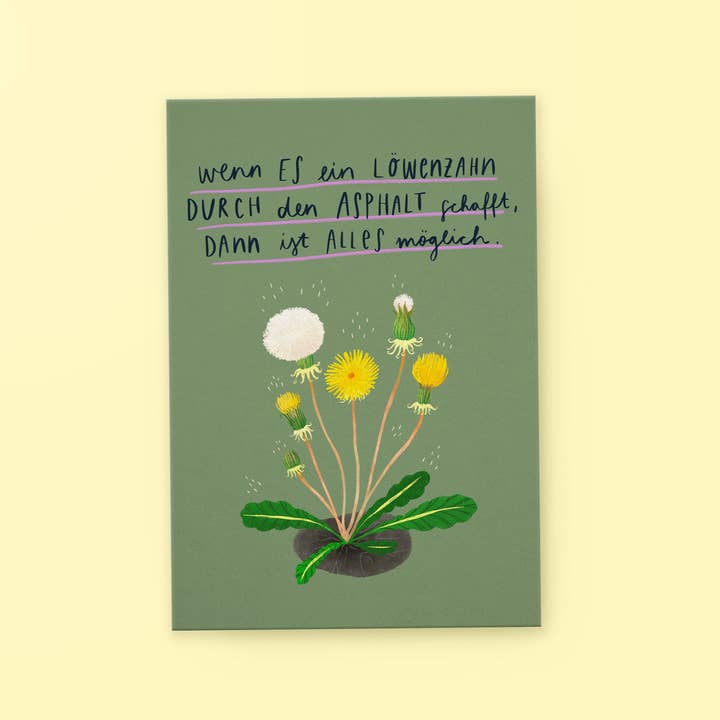 wenn ES ein LÖWENZAHN
DURCH den ASPHALT schafft,
DANN ist ALLES möglich.